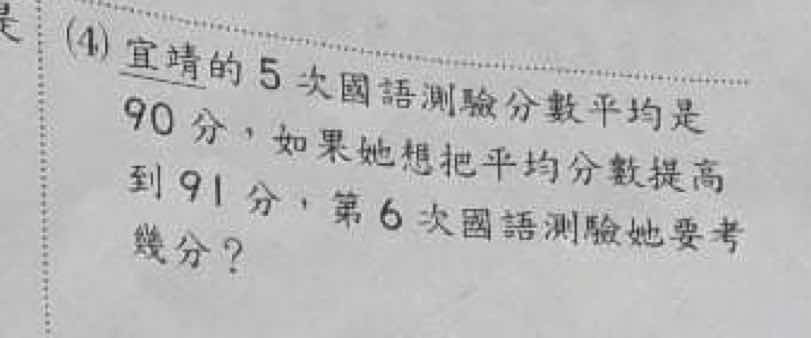 是
(4) 宜靖的 5 次國語測驗分數平均是
90 分,如果她想把平均分數提高
到 91 分,第 6 次國語測驗她要考
幾分?